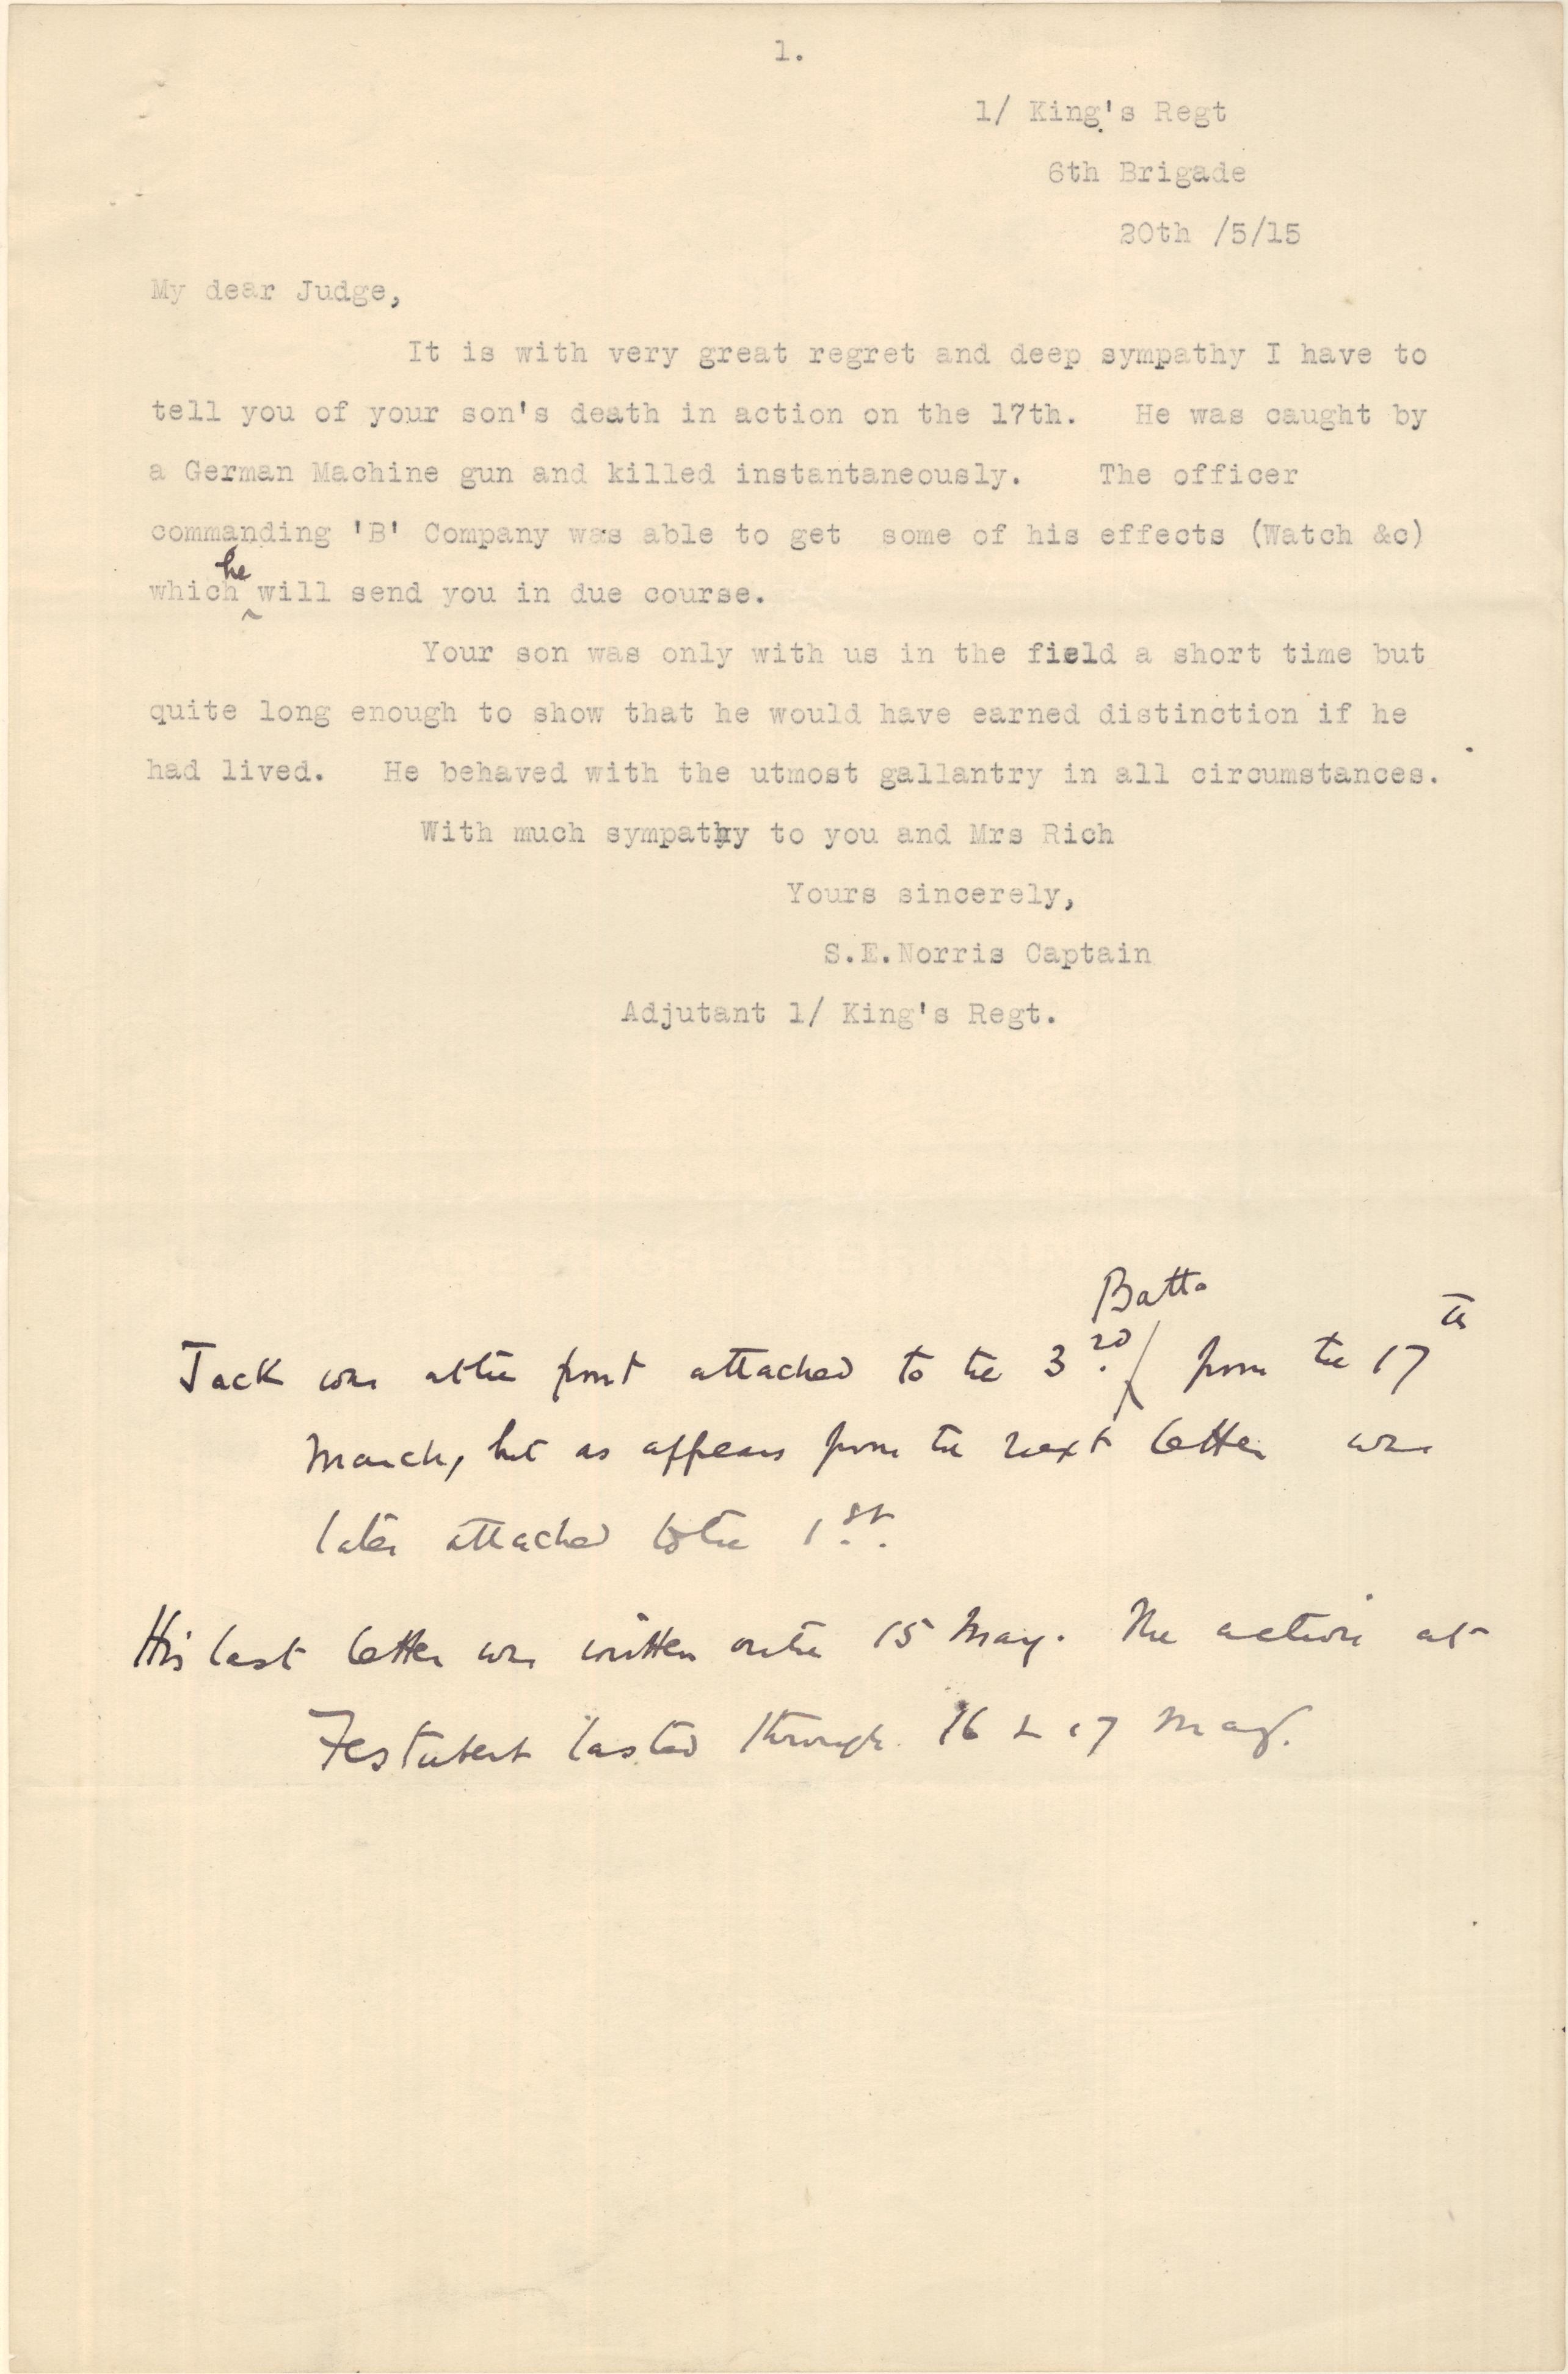 1.
1/ King's Regt
6th Brigade
20th /5/15
My dear Judge,
It is with very great regret and deep sympathy I have to
tell you of your son's death in action on the 17th. He was caught by
a German Machine gun and killed instantaneously. The officer
commanding 'B' Company was able to get some of his effects (Watch &c)
which he will send you in due course.
Your son was only with us in the field a short time but
quite long enough to show that he would have earned distinction if he
had lived. He behaved with the utmost gallantry in all circumstances.
With much sympathy to you and Mrs Rich
Yours sincerely,
S.E.Norris Captain
Adjutant 1/ King's Regt.
Jack was at the front attached to the 3rd Battn from the 17th
March, but as appears from the next letter was
later attached to the 1st.
His last letter was written on the 15 May. The action at
Festubert lasted through 16 & 17 May.